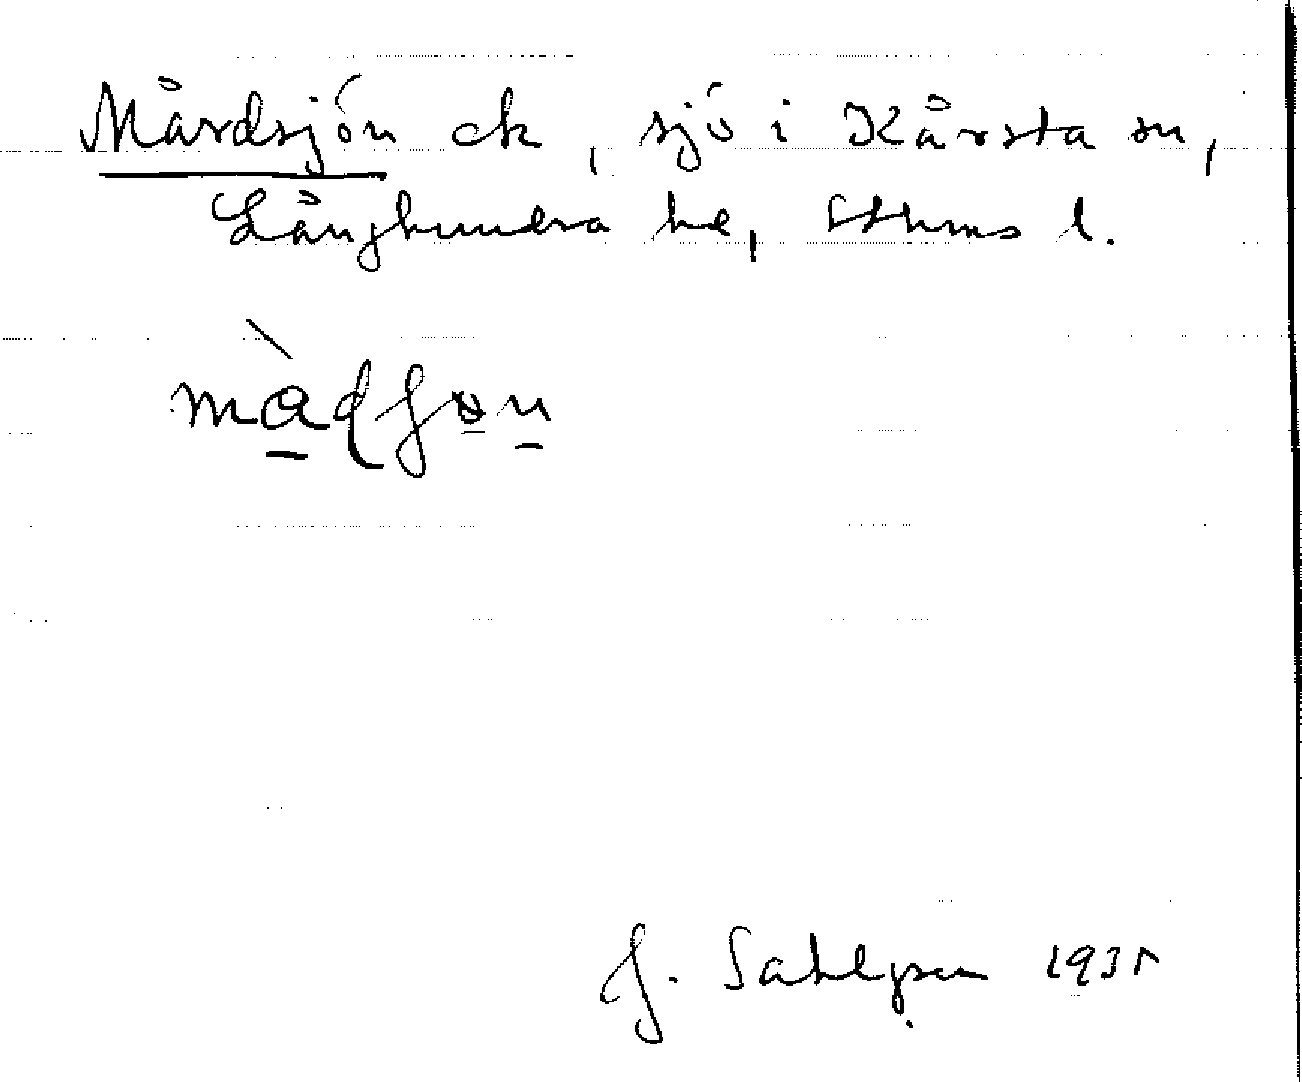 Mårdsjön ek, sjö i Kårsta sn,
Långhundra hd, Sthms l.
J. Sahlgren 1935